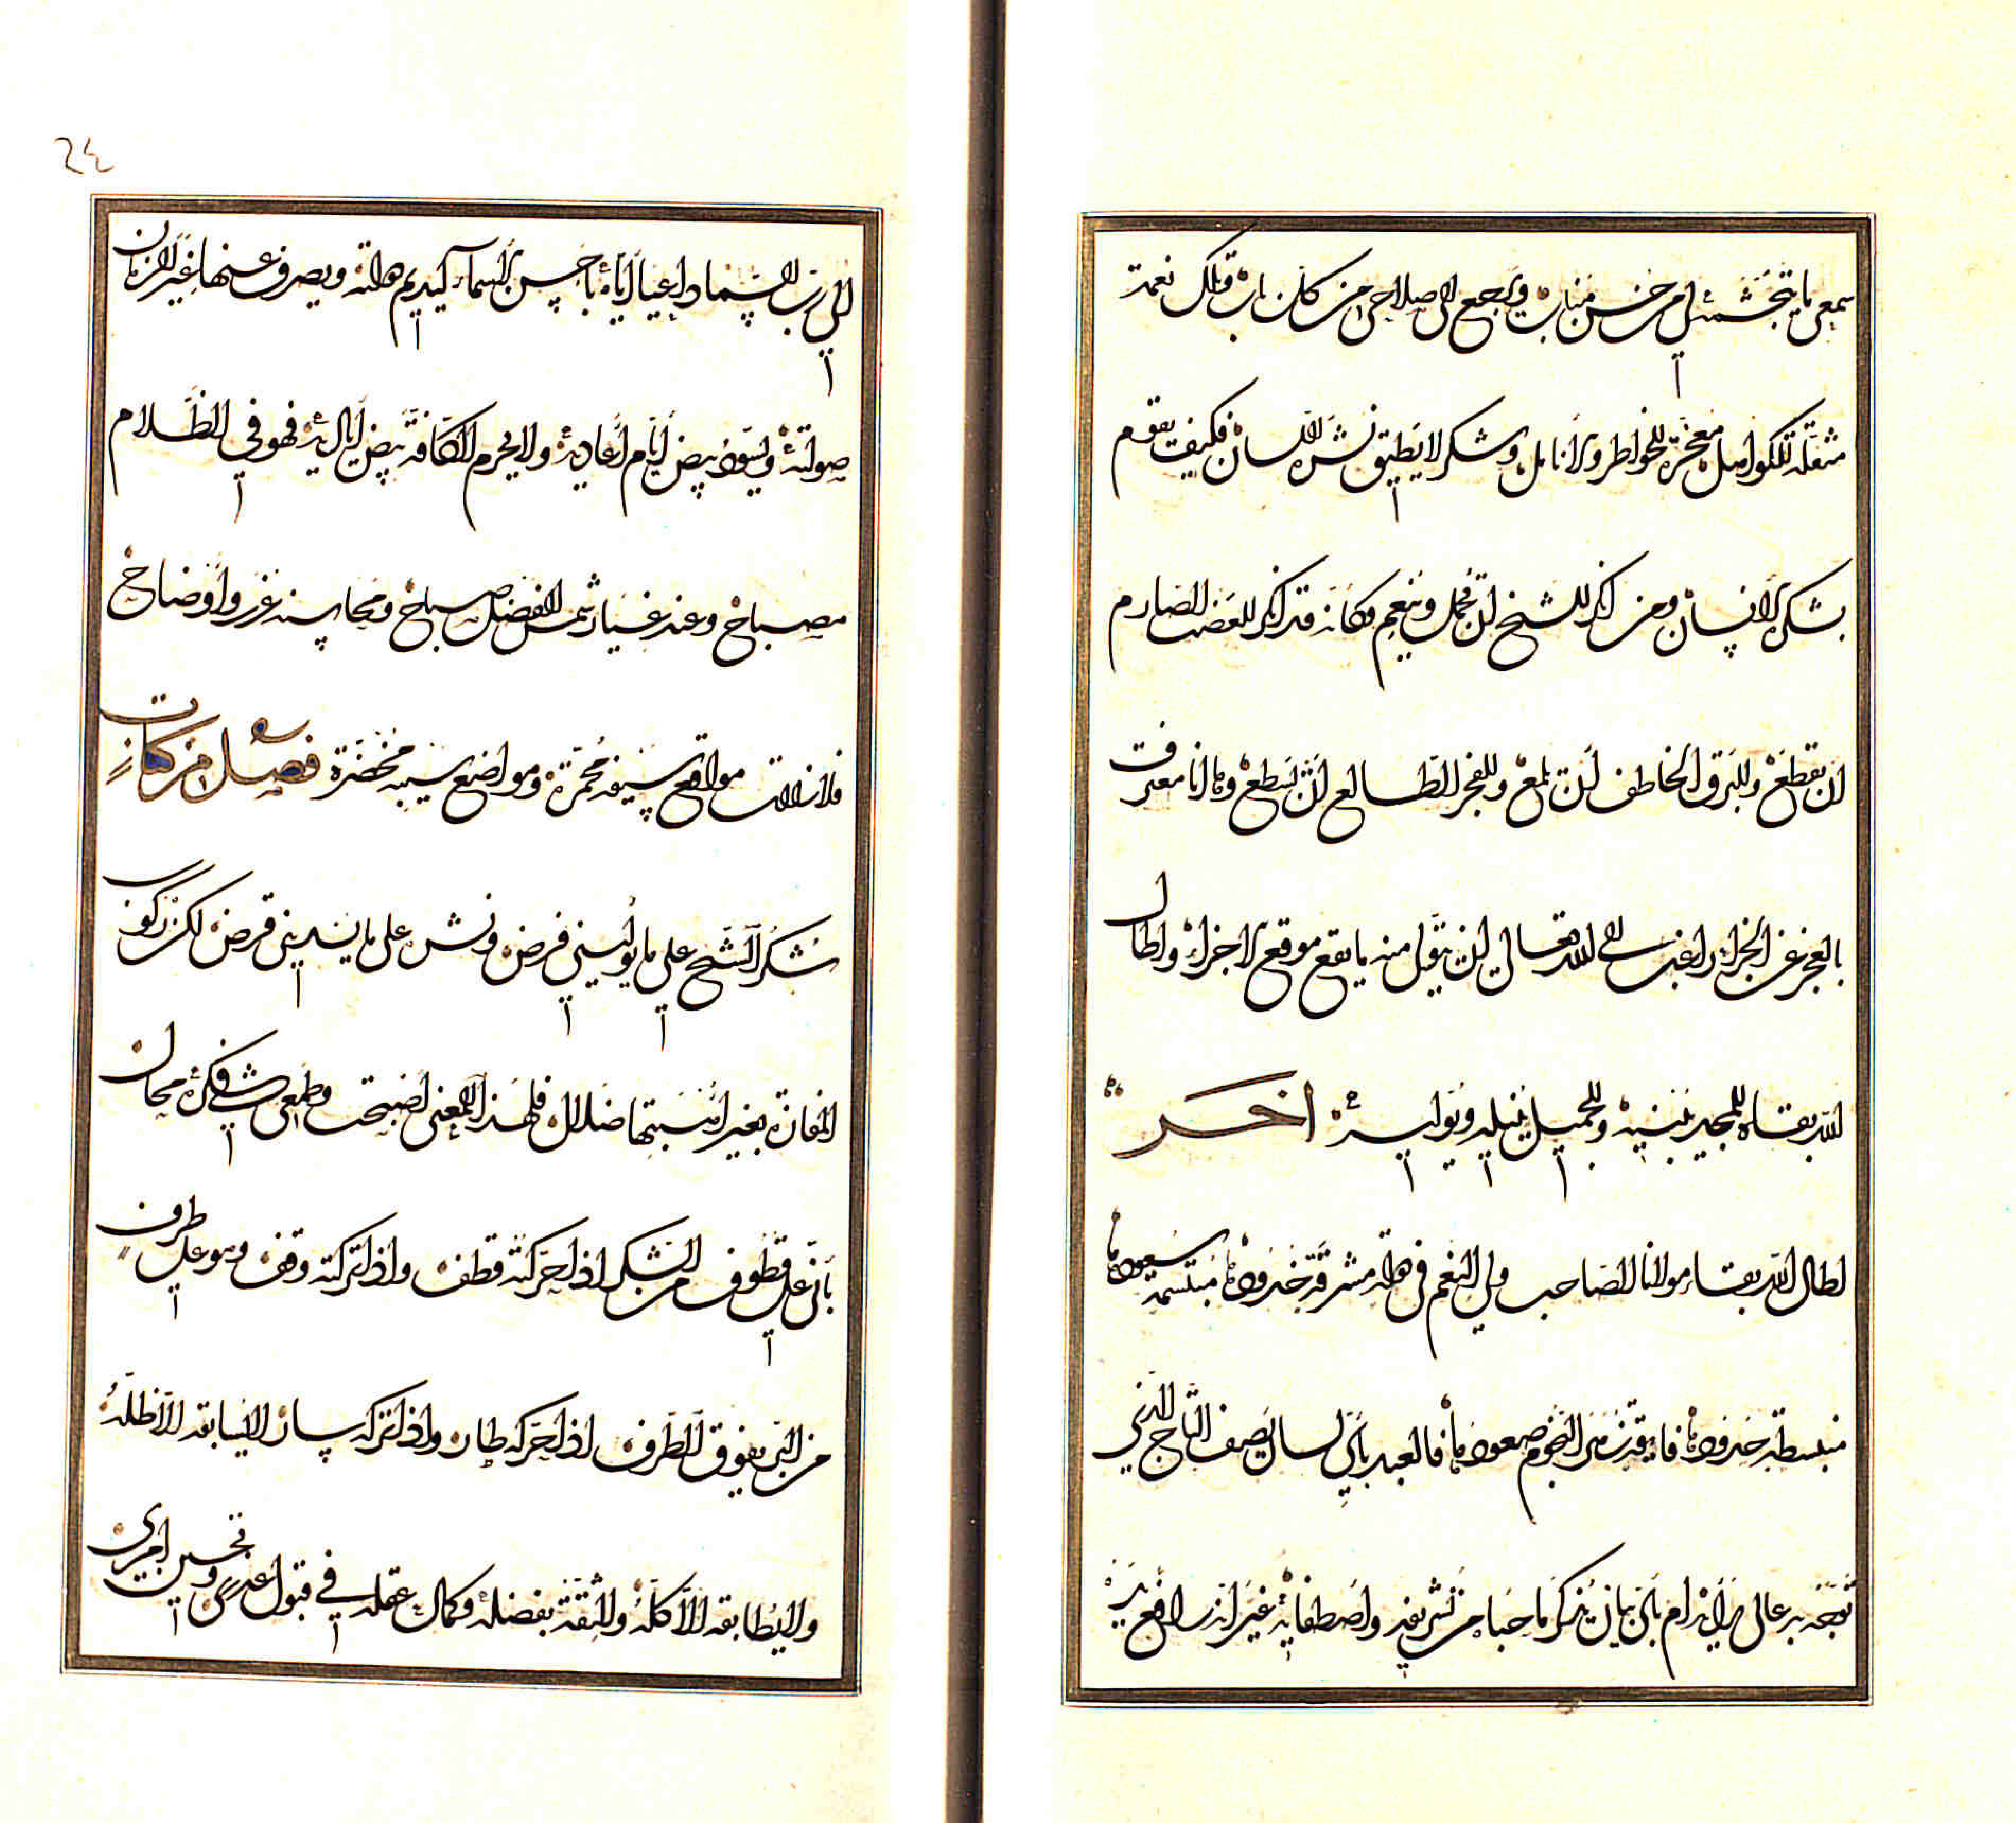 سمعي ما يتجشمه لي من حسن مناب ويجمع الى صلاحي من كل باب وتلك نعمة
مثقلة للكواهل معجزة للخواطر والانامل وشكر لا يطيق نشره اللسان فكيف يقوم
بشكره الانسان ومن انكر للشيخ ان يجمل وينعم فكأنه قد انكر للعضب الصارم
ان يقطع وللبرق الخاطف ان يلمع وللفجر الطالع ان يسطع وها انا معترف
بالعجز عن الجزاء راغب الى الله تعالى ان يتقبل منه ما يقع موقع الاجزاء واطال
الله بقاه للمجد يبنيه وللجميل ينيله ويوليه آخر
اطال الله بقاء مولانا الصاحب ولي النعم في دولة مشرقة سعودها مبتسمة
منبسطة حدودها فايقة من النجوم صعودها فالعبد بأي لسان يصف التاج الذي
توجه به عالي رأيه ام بأي بيان يذكر ما حباه من تشريفه واصطفائه غير انه رافع يده
الى رب السماء داعيا اياه باحسن الاسماء ليديم دولته ويصرف عنها غير الزمان
صولته ويسود بيض ايام اعاديه ولا يحرم الكافة بيض اياديه فهو في الظلام
مصباح وعند غياب شمس الفضل صباح ومحاسنه غرر واوضاح
فلا زالت مواقع سيفه محمرة ومواضع سيبه مخضرة فصل من كتاب
شكر الشيخ على ما يوليني فرض ونشره على ما يسديني قرض لكن ركوب
المفازة بغير اهبتها ضلال فلهذا المعنى اصبحت وطمعي في شكره محال
بأني على قطوف من الشكر اذا حركته قطف واذا تركته وقف وهو على طرف
من البر يفوق الطرف اذا حركه طار واذا تركه سار لا يسابقه الا ظله
ولا يطابقه الا كله والثقة بفضله وكمال عقله في قبول عذري وتحسين امري